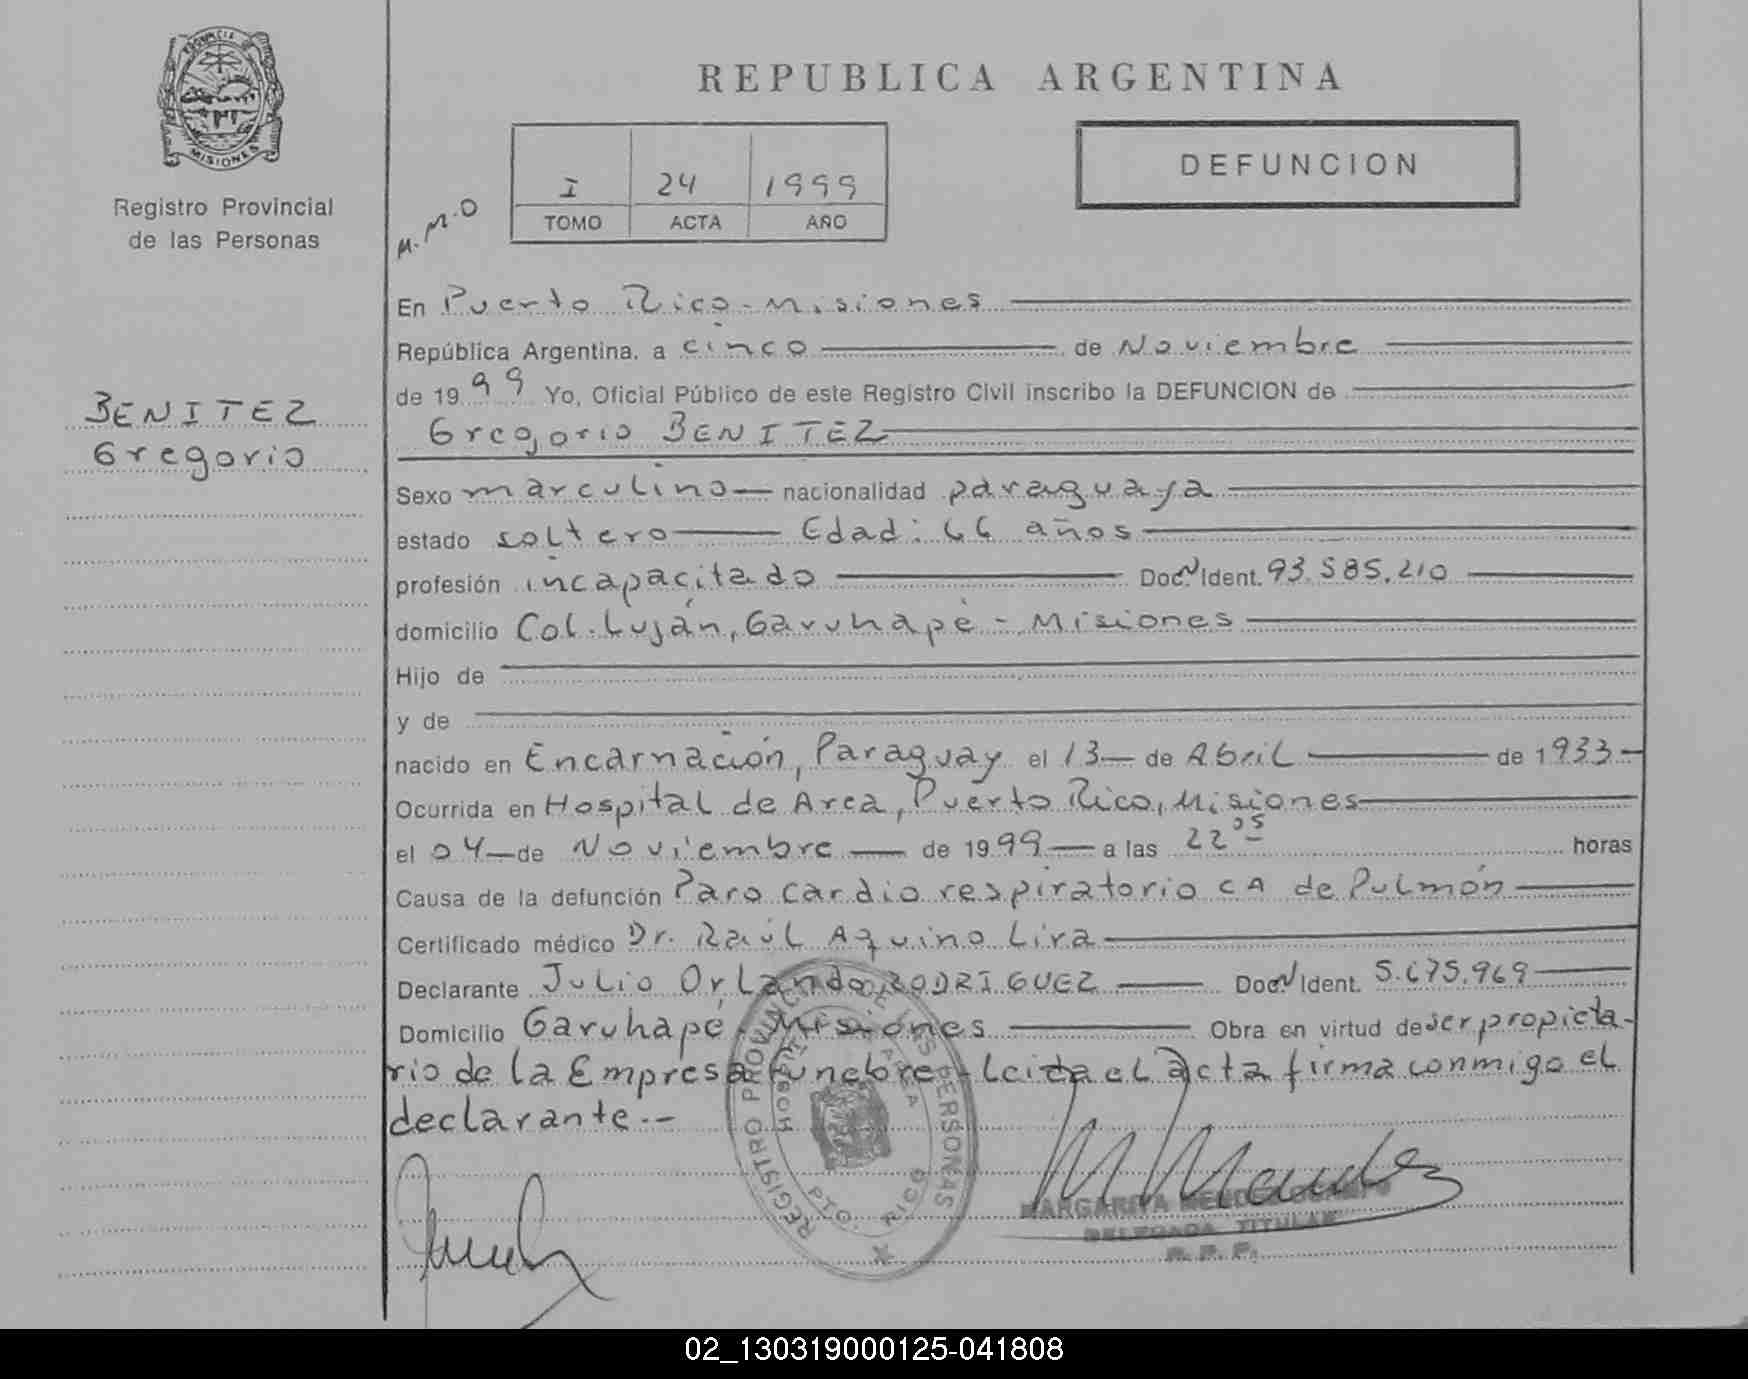 PROVINCIA DE
MISIONES
Registro Provincial
de las Personas
BENITEZ
Gregorio
REPUBLICA ARGENTINA
I 24 1999
TOMO ACTA AÑO
DEFUNCION
M.M.O
En Puerto Rico - Misiones
República Argentina, a cinco de Noviembre
de 1999 Yo, Oficial Público de este Registro Civil inscribo la DEFUNCION de
Gregorio BENITEZ
Sexo marculino nacionalidad paraguaya
estado soltero Edad: 66 años
profesión incapacitado Doc. N Ident. 93.585.210
domicilio Col. Luján, Garuhapé - Misiones
Hijo de
y de
nacido en Encarnación, Paraguay el 13 de Abril de 1933
Ocurrida en Hospital de Area, Puerto Rico, Misiones
el 04 de Noviembre de 1999 a las 22 05 horas
Causa de la defunción Paro cardio respiratorio CA de Pulmón
Certificado médico Dr. Raúl Aquino Lira
Declarante Julio Orlando RODRIGUEZ Doc. N Ident. 5.675.969
Domicilio Garuhapé, Misiones Obra en virtud de ser propieta-
rio de la Empresa funebre - Leida el acta firma conmigo el
declarante.-
REGISTRO PROVINCIAL DE LAS PERSONAS
HOSPITAL DE AREA
PTO. RICO
MARGARITA MENDEZ OCAMPO
DELEGADA TITULAR
R. P. P.
02_130319000125-041808